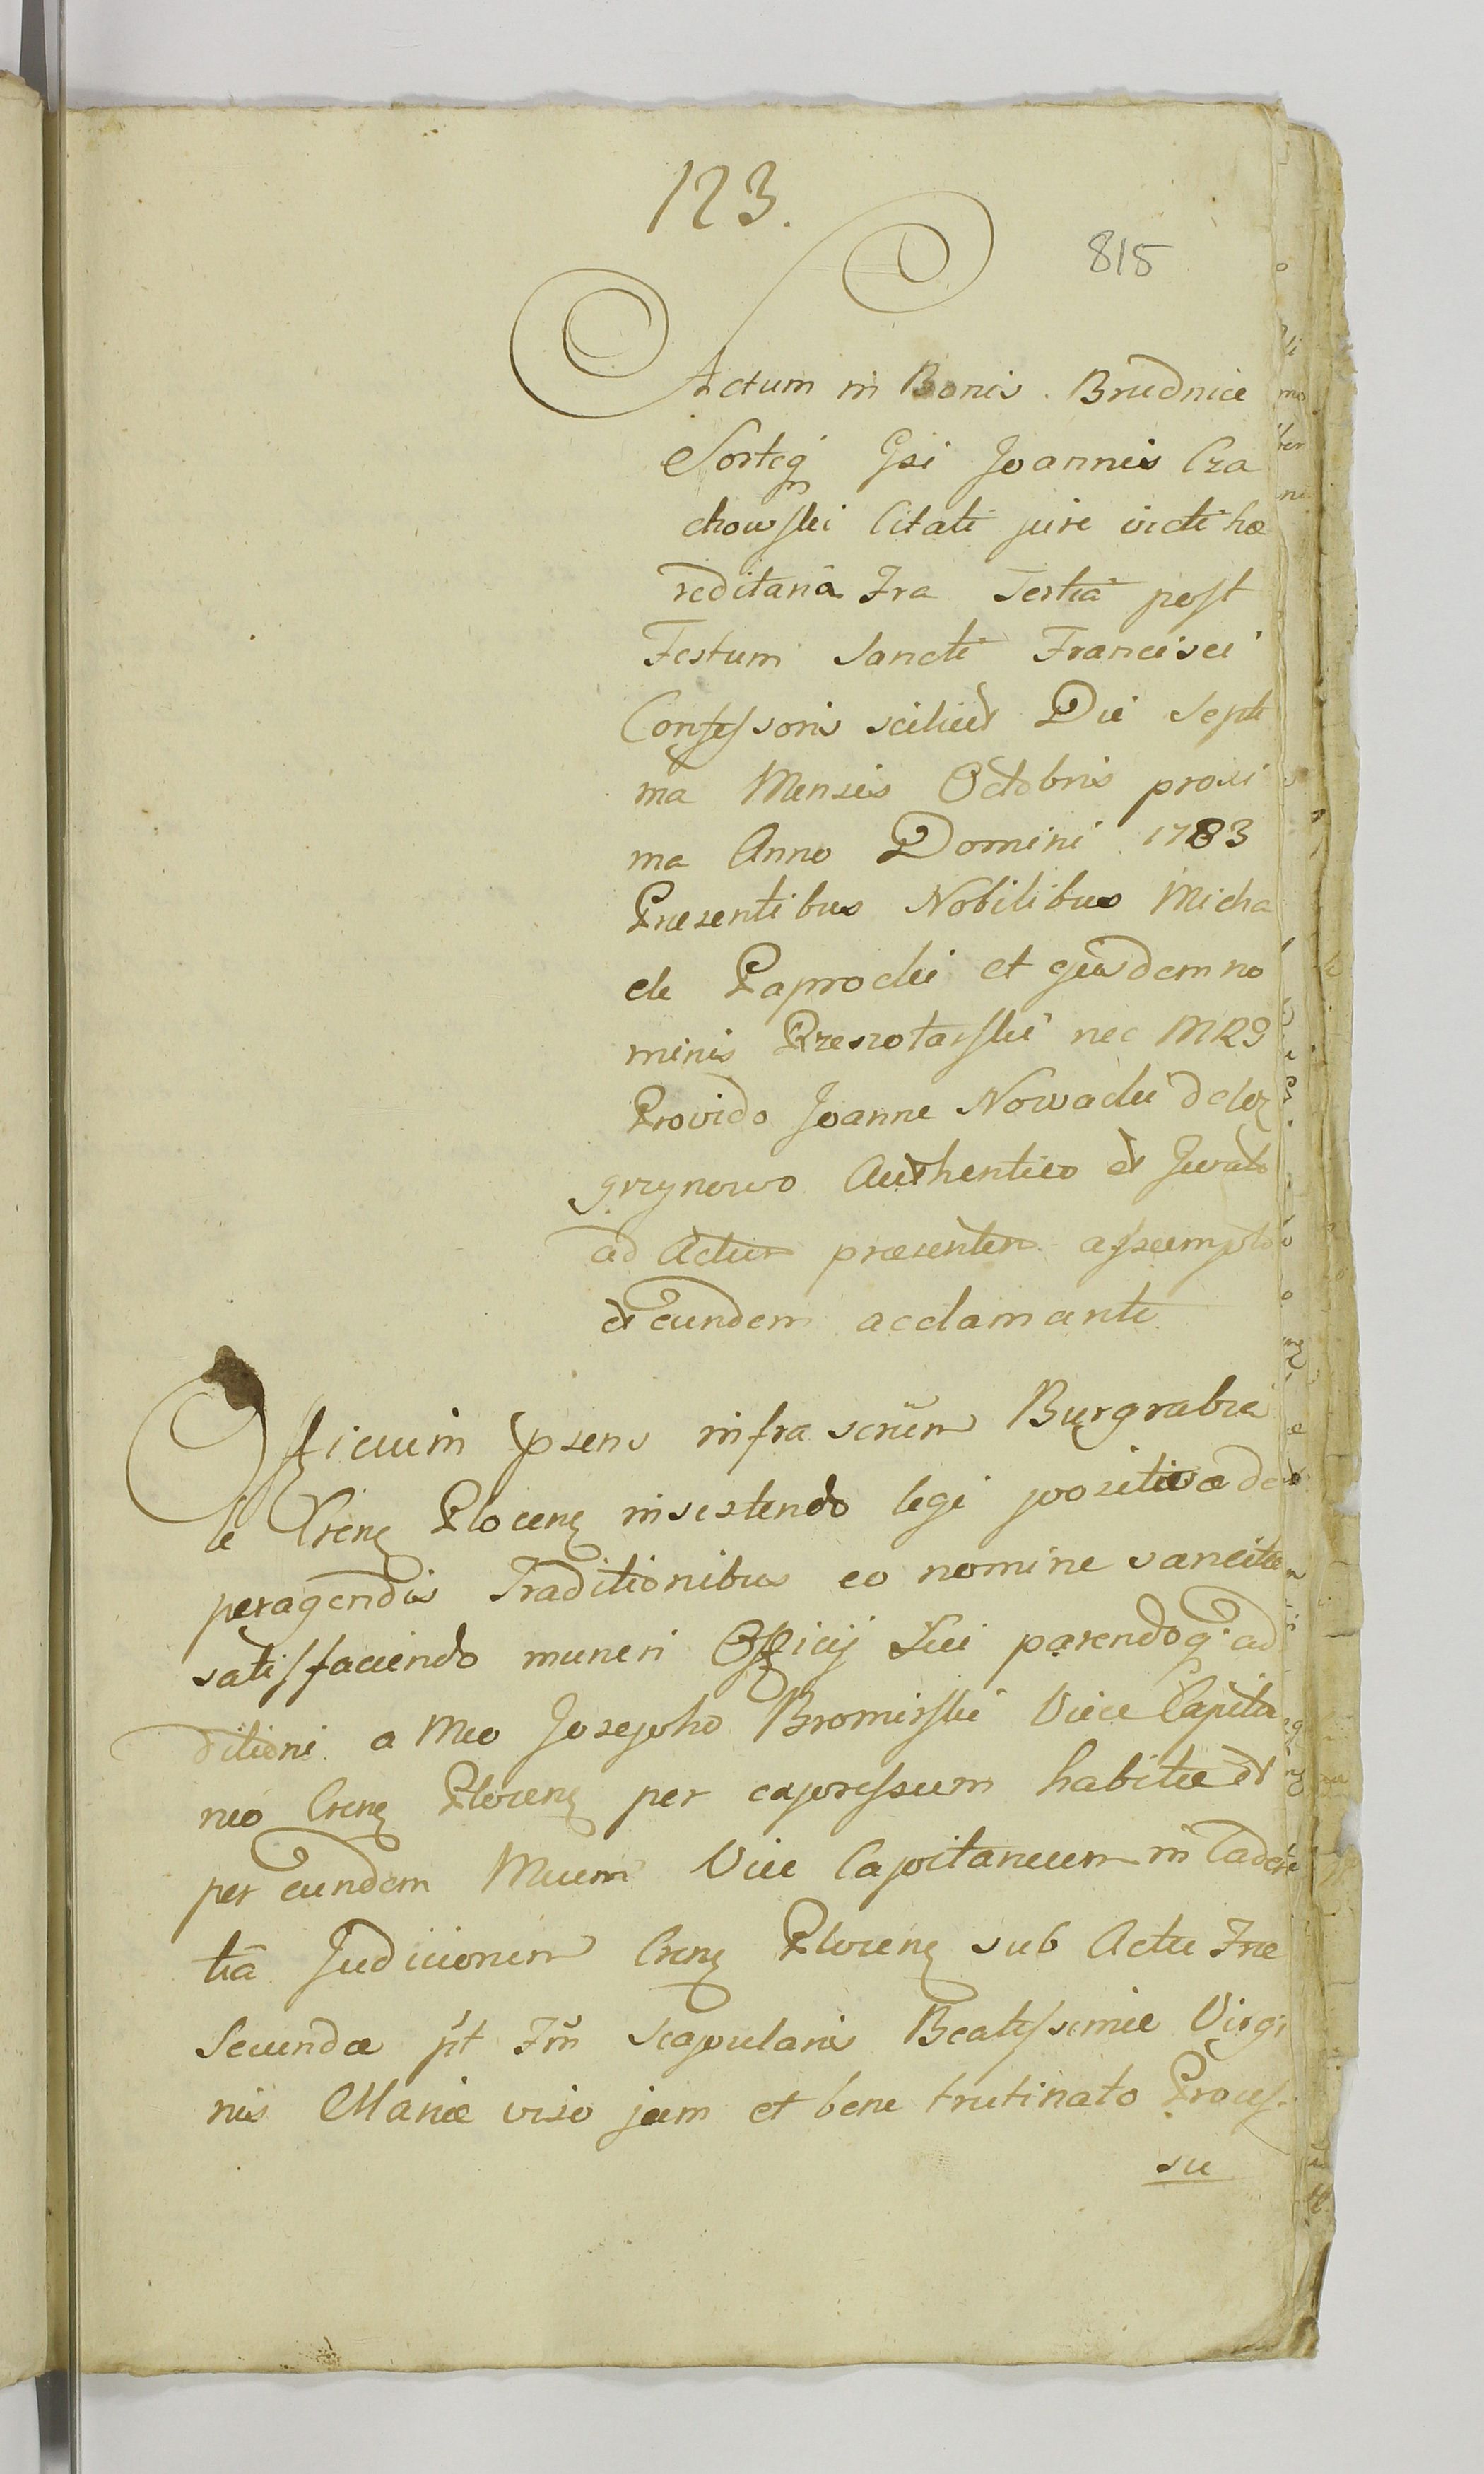 123.
815
Actum in Bonis Brudnice
Sorteq Gsi Joannis Cza
chowski Citati jure victi hæ
reditariâ Fra Tertiâ post
Festum Sancti Francisci
Confessoris scilicet Die Septi
mâ Mensis Octobris proxi
ma Anno Domini 1783
Præsentibus Nobilibus Micha
ele Paprocki et ejusdem no
minis Przeszotarski nec MRG
Provido Joanne Nowacki de
grzynowo Authentico et Jurato
ad Actum præsentem assumpto
et eundem acclamante
Officium psens infra scrum Burgrabia
le Crens Plocens insistendo legi positivæ de
peragendis Traditionibus eo nomine sancitæ
satisfaciendo muneri Officij Sui parendoq ad
ditioni a Mco Josepho Bromirski Vice Capita
neo Crens Plocens per expressum habitæ et
per eundem Mcum Vice Capitaneum in Caden
tiâ Judiciorum Crens Plocens sub Actu Fræ
Secundæ pt Fm Scapularis Beatissimæ Virgi
nis Mariæ viso jam et bene trutinato Proces-
su